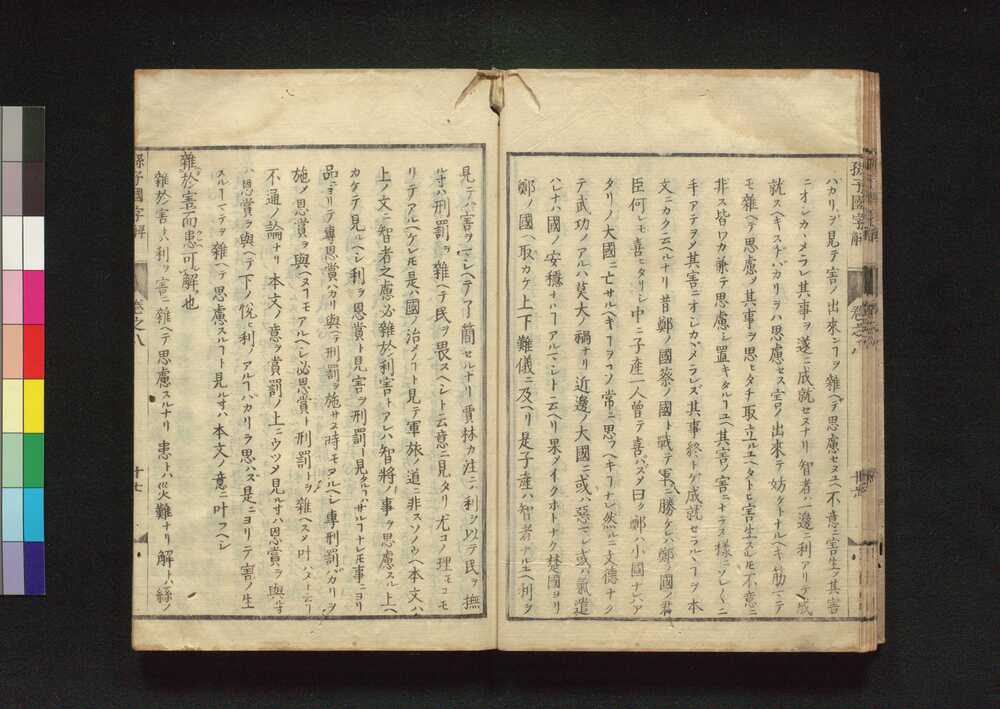 ハカリヲ見テ害ノ出來ンヿヲ雜ヘテ思慮セヌユヘ不意ニ害生ノ其害
ニオシカヽメラレ其事ヲ遂ニ成就セヌナリ智者ハ一邊ニ利アリテ成
就スヘキスヂバカリヲハ思慮セス害ノ出來テ妨ケトナルヘキ筋ニテ
モ雜ヘテ思慮ノ其事ヲ思ヒタチ取立ルユヘタトヒ害生スレモ不意ニ
非ス皆ワカ兼テ思慮シ置キタルヿユヘ其害ノ害ニナラヌ樣ニソレ〱ニ
キアテヲメ其害ニオシカヽメラレズ其事終トゲ成就セラルヽヿヲ本
文ニカク云ヘルナリ昔鄭ノ國蔡ノ國ト戰テ軍ニ勝ケレハ鄭ノ國ノ君
臣何レモ喜ヒタリシ中ニ子産一人曽テ喜バズノ曰ク鄭ハ小國ナレハア
タリノ大國ニ亡サルヘキヿヲコソ常ニ思フヘキヿナレ然ルニ文德ナク
テ武功ノアルハ莫大ノ禍ナリ近邊ノ大國ニ或ハ惡マレ或ハ氣遣
ハレナハ國ノ安穩ナルヿアルマシト云ヘリ果メイクホトナク楚國ヨリ
鄭ノ國ヘ取カケ上下難儀ニ及ヘリ是子産ハ智者ナルユヘ利ヲ
孫子國字解
見テハ害ヲマシヘテ了簡セルナリ賈林カ注ニハ利ヲ以テ民ヲ撫
ルヰハ刑罰ヲ雜ヘテ民ヲ畏スヘシト云意ニ見タリ尤コノ理モコモ
リテアルヘケレモ是ハ國ノ治メノヿト見テ軍旅ノ道ニ非スソノウヘ本文ハ
上ノ文ニ智者之慮必雜於利害トアレハ智將ノ事ヲ思慮スル上ヘ
カケテ見ルヘシ利ヲ恩賞ト見害ヲ刑罰ト見タルハハサルヿナレモ事ニヨリ
品ニヨリテ專恩賞ハカリ與ヘテ刑罰ヲ施サヌ時モアルヘシ專刑罰バカリヲ
施ノ恩賞ヲ與ヘヌヿモアルヘシ必恩賞ト刑罰トヲ雜ヘスメ叶ハヌト云ヿ
不通ノ論ナリ本文ノ意ヲ賞罰ノ上ニウツメ見ルヰハ恩賞ヲ與ルヰ
ハ恩賞ヲ與ヘテ下ノ悅ヒ利ノアルヿバカリヲ思ハズ是ニヨリテ害ノ生
スルヿマテヲ雜ヘテ思慮スルヿト見ルヰハ本文ノ意ニ叶フヘシ
雜於害而患可解也
雜於害トハ利ヲ害ニ雜ヘテ思慮スルナリ患トハ災難ナリ解トハ絲ノ
孫子國字解 卷之八 十七